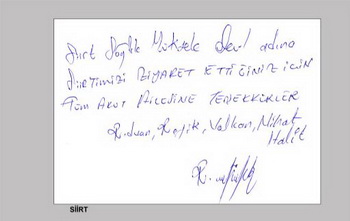 Siirt Sağlık Müdürlüğü adına
Siirtimizi ZİYARET ETTİĞİNİZ İÇİN
TÜM AKUT AİLESİNE TEŞEKKÜRLER
Rıdvan, Refik, Volkan, Nihat
Halit
SİİRT